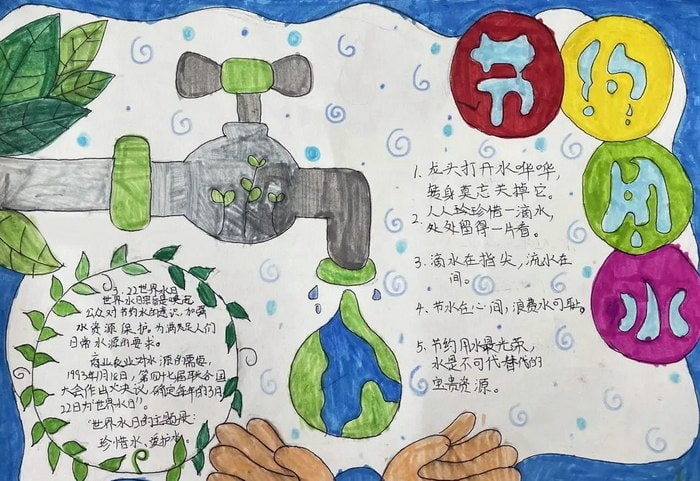 节
约
用
水
1. 龙头打开水哗哗,
转身莫忘关掉它。
2. 人人珍惜一滴水,
处处留得一片春。
3. 滴水在指尖,流水在
间。
4. 节水在心间,浪费水可耻。
5. 节约用水最光荣,
水是不可代替代的
宝贵资源。
3.22世界水日
世界水日宗旨是唤起
公众对节约水的意识,加强
水资源保护。为满足人们
日常水源的需求。
商业农业对水源的需要,
1993年1月18日,第四十七届联合国
大会作出决议,确定每年的3月
22日为"世界水日"。
"世界水日的主题是:
珍惜水、爱护水。